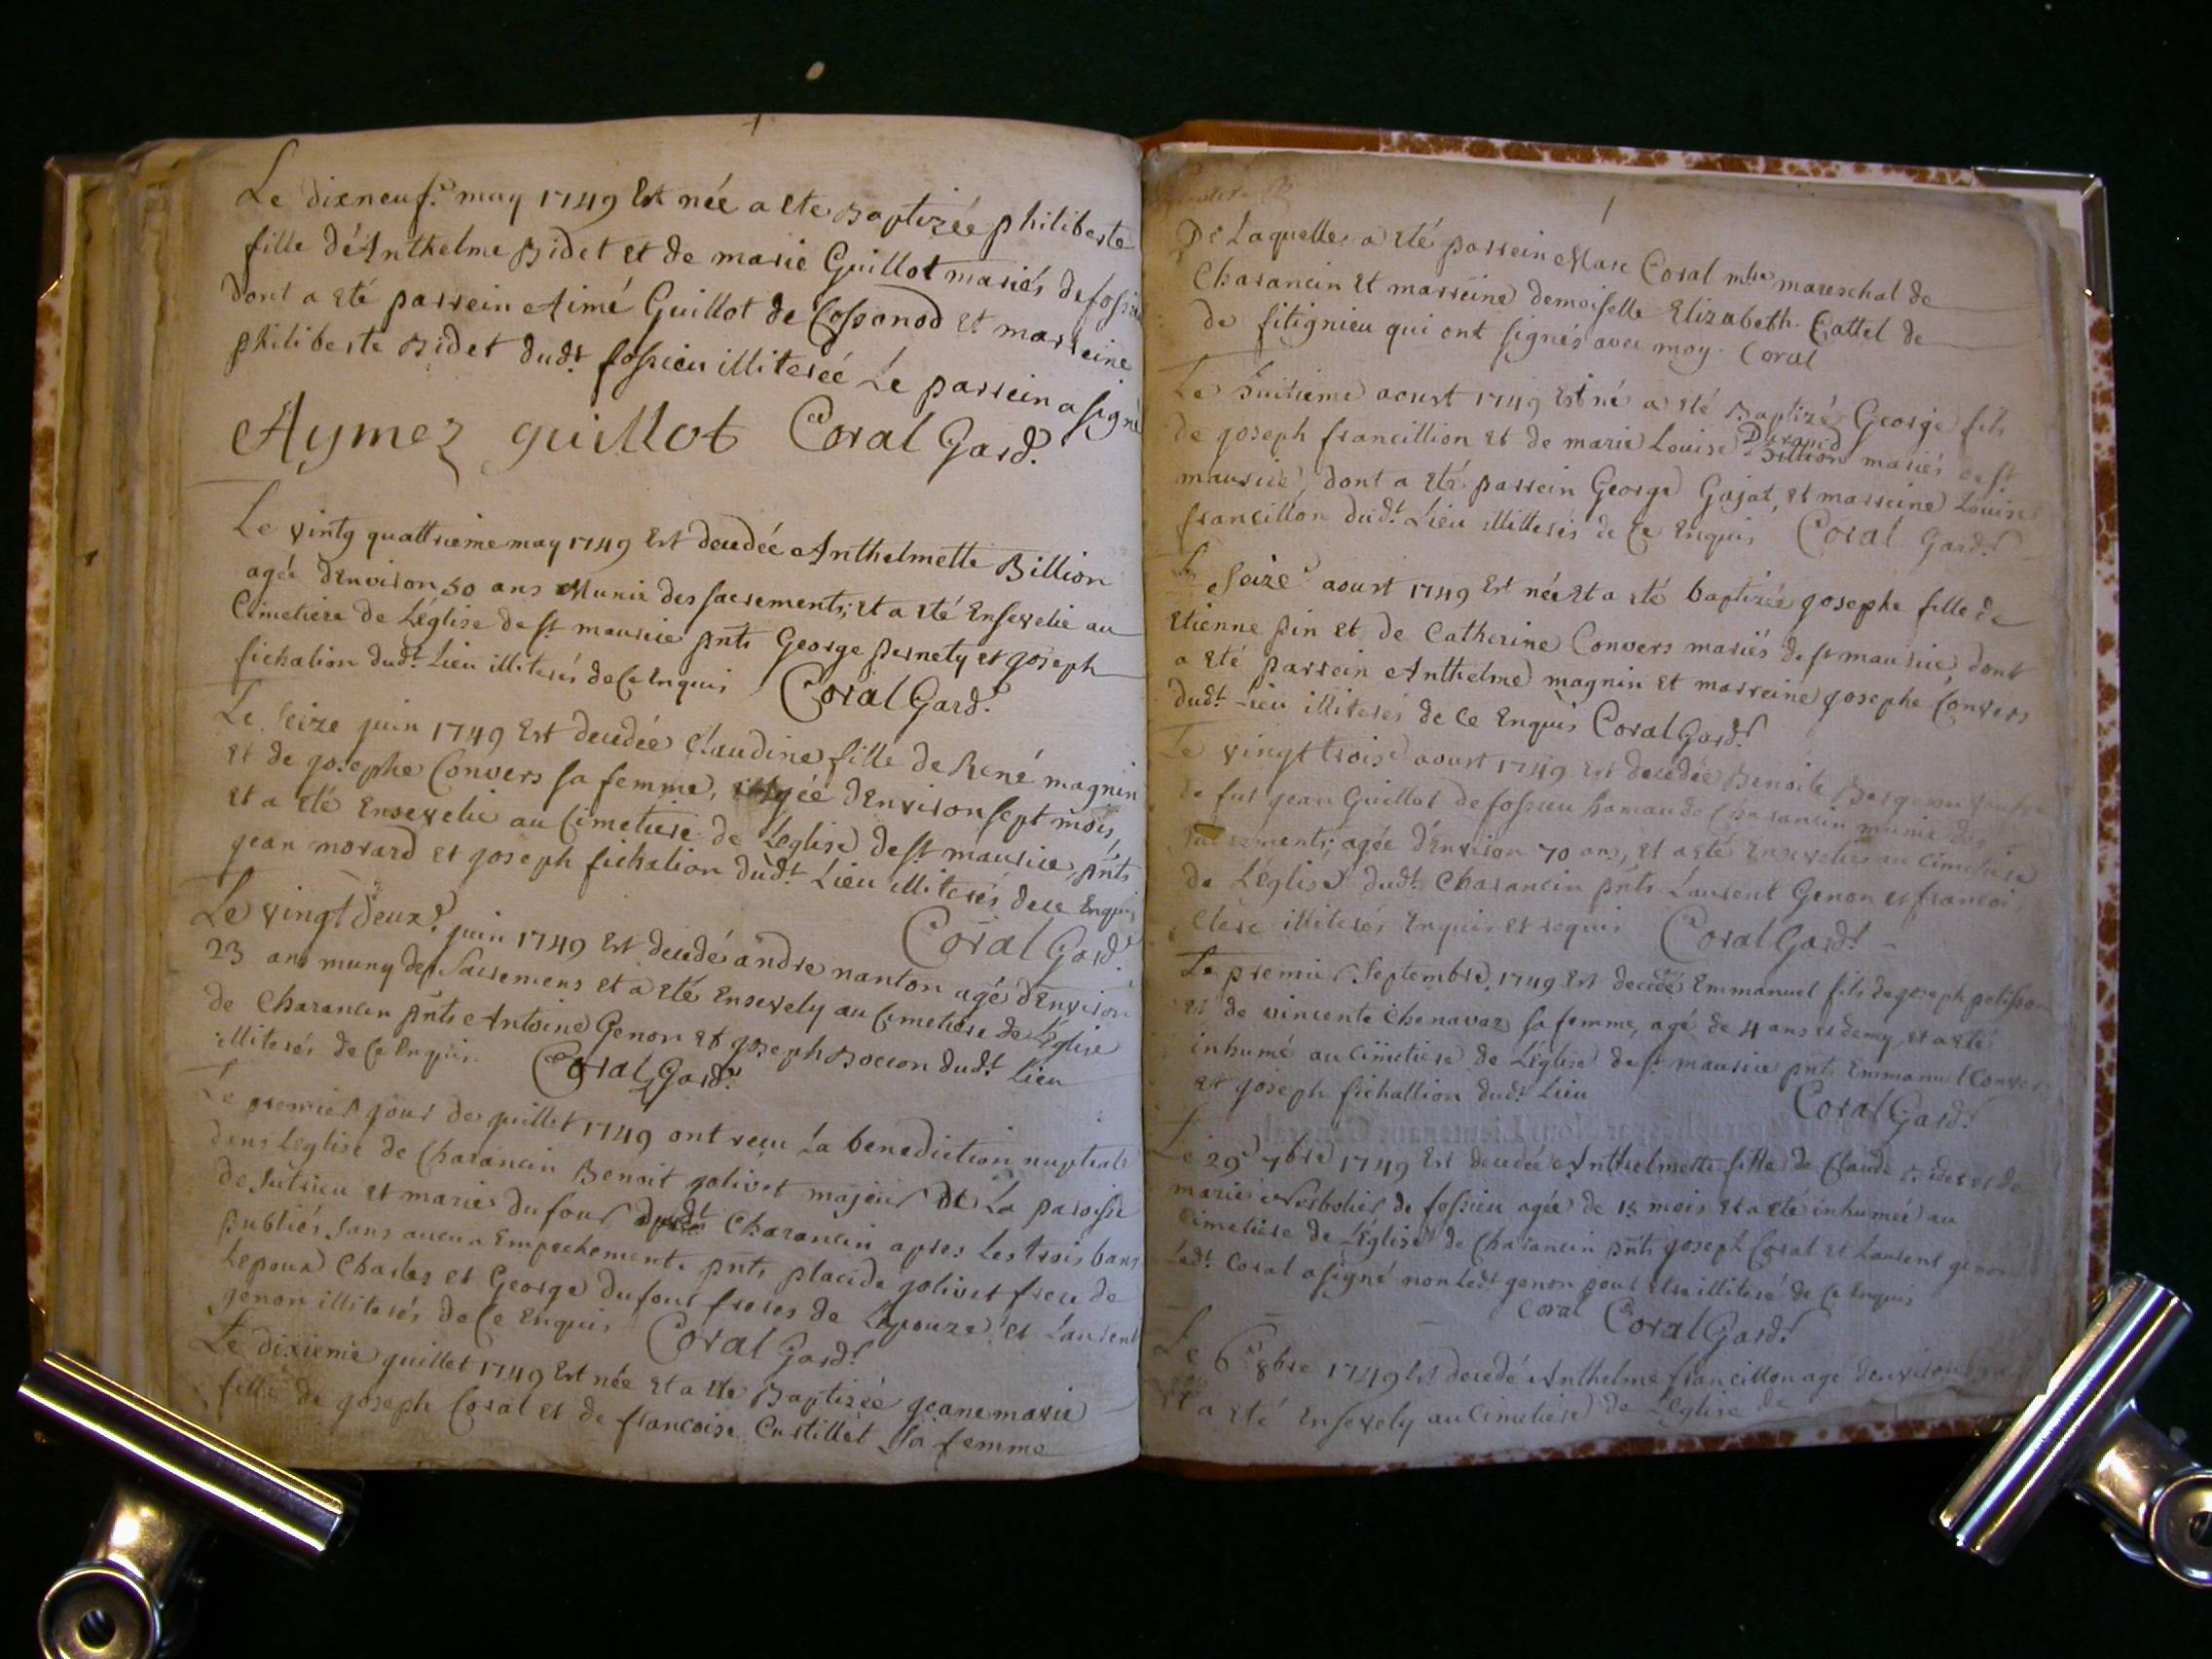 Le dixneufe may 1749 Est née a ete Baptizée philiberte
fille d'Anthelme Bidet et de marie Guillot mariés de fossieu
dont a eté parrein Aimé Guillot de Cossonod et marreine
philiberte Bidet dudt fossieu illiterée Le parrein a signé
Aymez guillot Coral Gard.
Le vintg quattrieme may 1749 Est decedée Anthelmette Billion
agée d'Environ 50 ans Munie des sacrements, et a eté Ensevelie au
Cimetiere de L'église de st maurice pnts George pernety et joseph
fichation dudt Lieu illiterés de Ce Enquis Coral Gard.
Le Seize juin 1749 Est decedée Claudine fille de René magnin
et de josephe Convers sa femme, agée d'Environ sept mois,
et a eté Ensevelie au Cimetiere de L'eglise de st maurice, pnts
jean morard et joseph fichation dudt Lieu illiterés de ce Enquis
Coral Gard.
Le vingt deuxe juin 1749 Est decedé andre nanton agé d'Environ
23 ans muny des Sacremens et a eté Ensevely au Cimetiere de L'église
de Charancin pnts Antoine Genon et joseph Bocion dudt Lieu
illiterés de Ce Enquis. Coral Gard.
Le premier jour de juillet 1749 ont reçu La benediction nuptiale
dans L'eglise de Charancin Benoit jolivet majeur de La paroisse
de Sutrieu et marie dufour dudt Charancin apres Les trois bans
publiés sans aucun Empechement. pnts placide jolivet frere de
Lepoux Charles et George dufour freres de L'epouze et Laurent
genon illiterés de Ce Enquis Coral Gard.
Le dixieme juillet 1749 Est née et a ete Baptizée jeane marie
fille de joseph Coral et de francoise Custillet sa femme
De Laquelle a eté parrein Marc Coral mtre mareschal de
Charancin et marreine demoiselle Elizabeth Cattel de
de fitignieu qui ont signés avec moy. Coral
Le huitieme aoust 1749 Est né a eté Baptizé George fils
de joseph francillion et de marie Louise Durand mariés de st
maurice, dont a eté parrein George Gojat, et marreine Louise
francillon dudt Lieu illitterés de Ce Enquis Coral Gard.
Le Seize aoust 1749 Est née et a eté baptizée josephe fille de
Etienne pin et de Catherine Convers mariés de st maurice, dont
a eté parrein Anthelme magnin et marreine josephe Convers
dudt Lieu illiterés de Ce Enquis Coral Gard.
Le vingt troise aoust 1749 Est decedée Benoite
de fut jean Guillot de fossieu hameau de Charancin munie des
Sacrements; agée d'Environ 70 ans, et a eté Ensevelie au Cimetiere
de L'église dudt Charancin pnts Laurent Genon et francois
Clerc illiterés Enquis et requis Coral Gard.
Le premier Septembre 1749 Est decedé Emmanuel fils de joseph pelisson
et de vincente Chenavaz sa femme, agé de 4 ans et demy, et a eté
inhumé au Cimetiere de L'église de st maurice pnts Emmanuel Convers
et joseph fichallion dudt Lieu
Coral Gard.
Le 29e 7bre 1749 Est decedée Anthelmette fille de Claude Bidet et de
marie de fossieu agée de 15 mois et a eté inhumée au
Cimetiere de L'Eglise de Charancin pnts joseph Coral et Laurent genon
Ledt Coral a signé non Ledt genon pour etre illiteré de Ce Enquis
Coral Coral Gard.
Le 6e 8bre 1749 Est decedé Anthelme francillon agé d'environ
Et a eté Ensevely au Cimetiere de L'eglise de